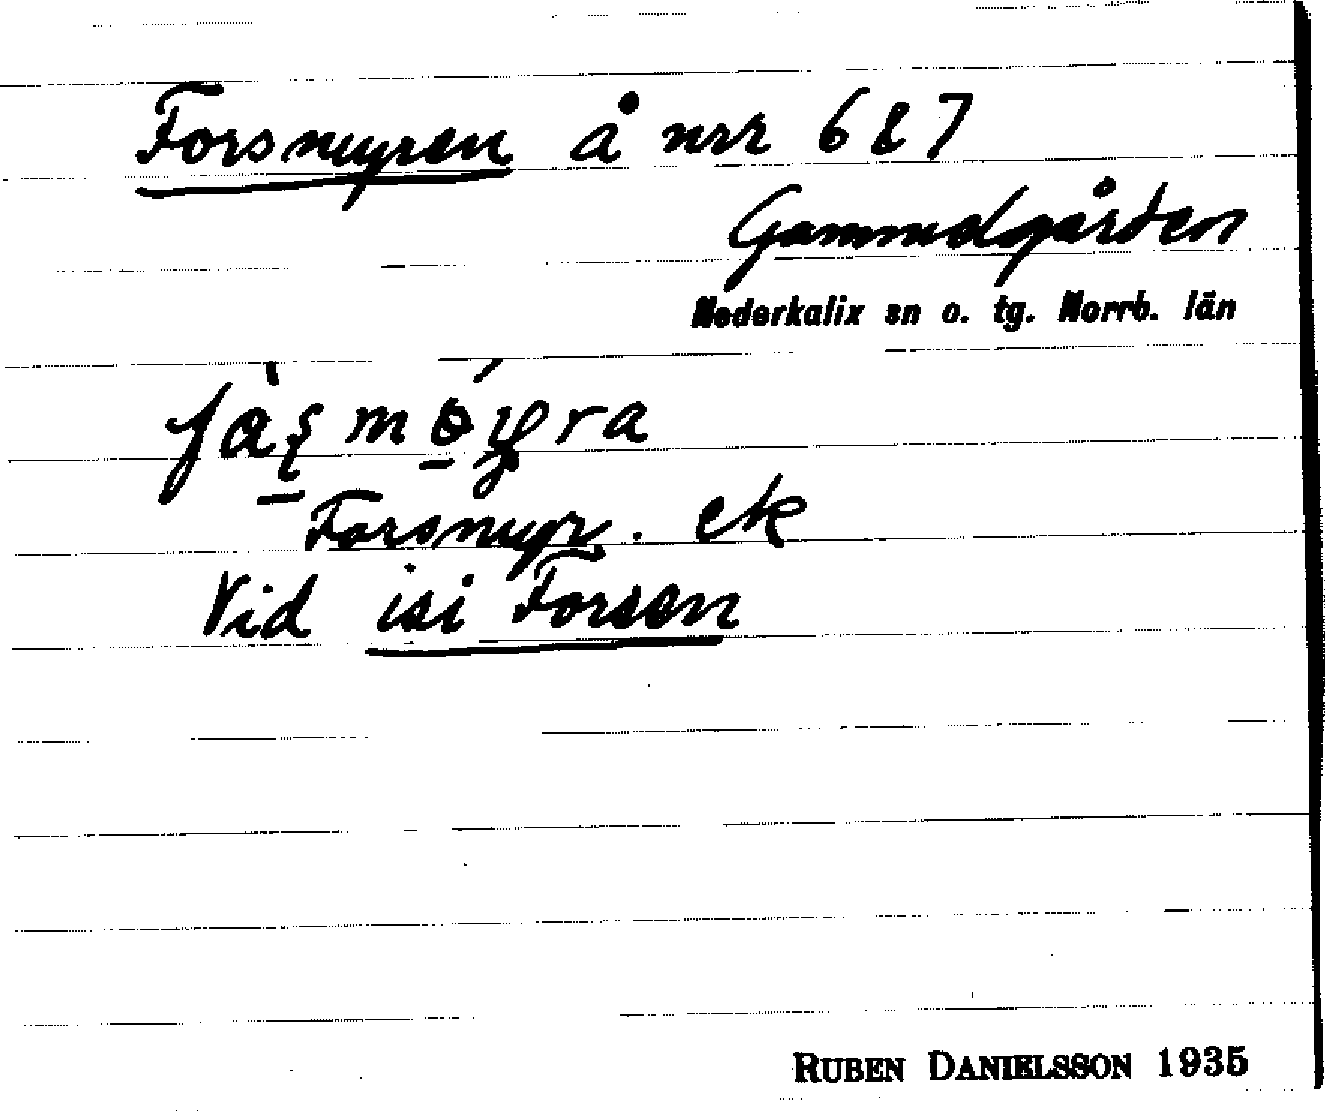 Forsmyren å nrr 6 & 7
Gammelgården
Nederkalix sn o. tg. Norrb. län
Forsmyr. ek
Vid isi Forsen
RUBEN DANIELSSON 1935